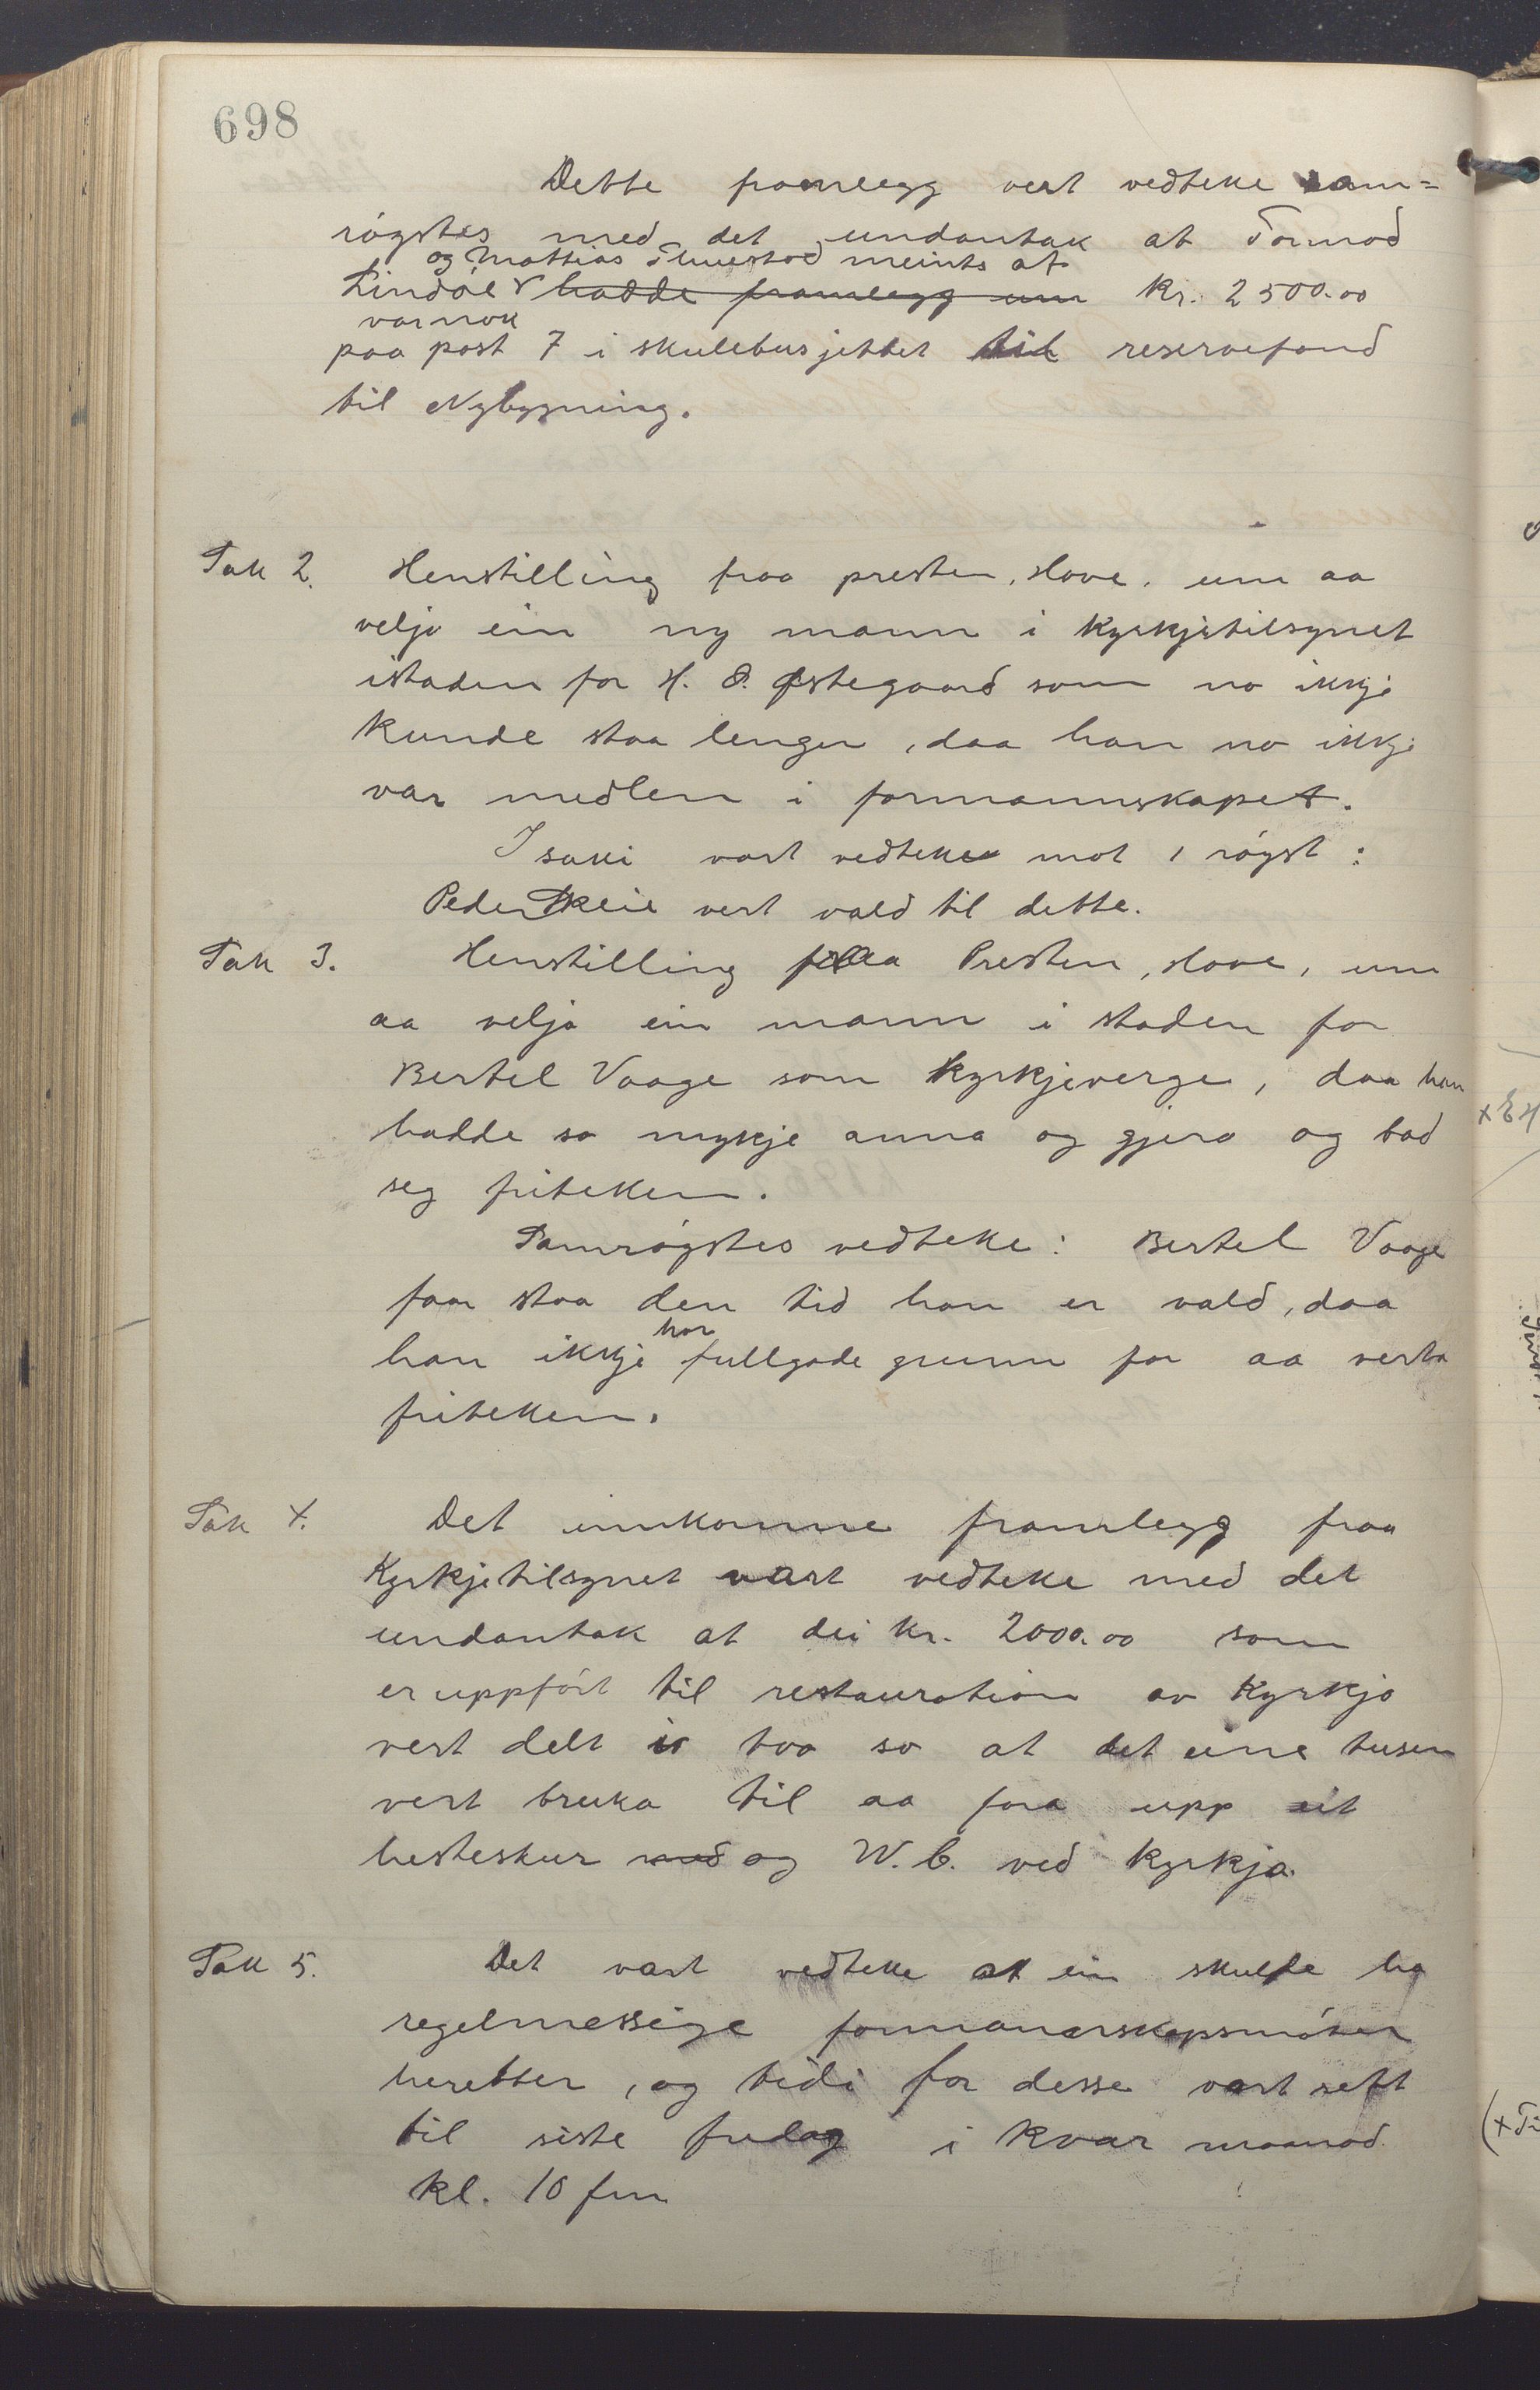 698
Dette framlegg vert vedteke sam=
røystes med det undantak at Tormod
og Mattias meints at
Lindøl hadde framlegg um kr. 2500.00
var nok
paa post 7 i skulebusjettet til reservefond
til Nybygning.
Sak 2. Henstilling fraa presten, Hove, um aa
velja ein ny mann i kyrkjetilsynet
istaden for H. O. Østegaard som no ikkje
kunde staa lenger, daa han no ikkje
var medlem i formannskapet.
I saki vart vedteke mot 1 røyst:
Peder Skeie vert vald til dette.
Sak 3. Henstilling fraa Presten, Hove, um
aa velja ein mann i staden for
Bertel Vaage som kyrkjeverge, daa han
hadde so mykje anna og gjera og bad
seg friteken.
Samrøystes vedteke: Bertel Vaage
faar staa den tid han er vald, daa
har
han ikkje fullgode grunn for aa verta
friteken.
Sak 4. Det innkomne framlegg fraa
Kyrkjetilsynet vart vedteke med det
undantak at dei kr. 2000.00 som
er uppført til restauration av kyrkja
vert delt i tvo so at det eine tusen
vert bruka til aa föra upp eit
hesteskur med og W.C. ved kyrkja.
Sak 5. Det vart vedteke at ein skulde ha
regelmessige formannskapsmøter
heretter, og tidi for desse vart sett
til siste fredag i kvar maanad
kl. 10 fm